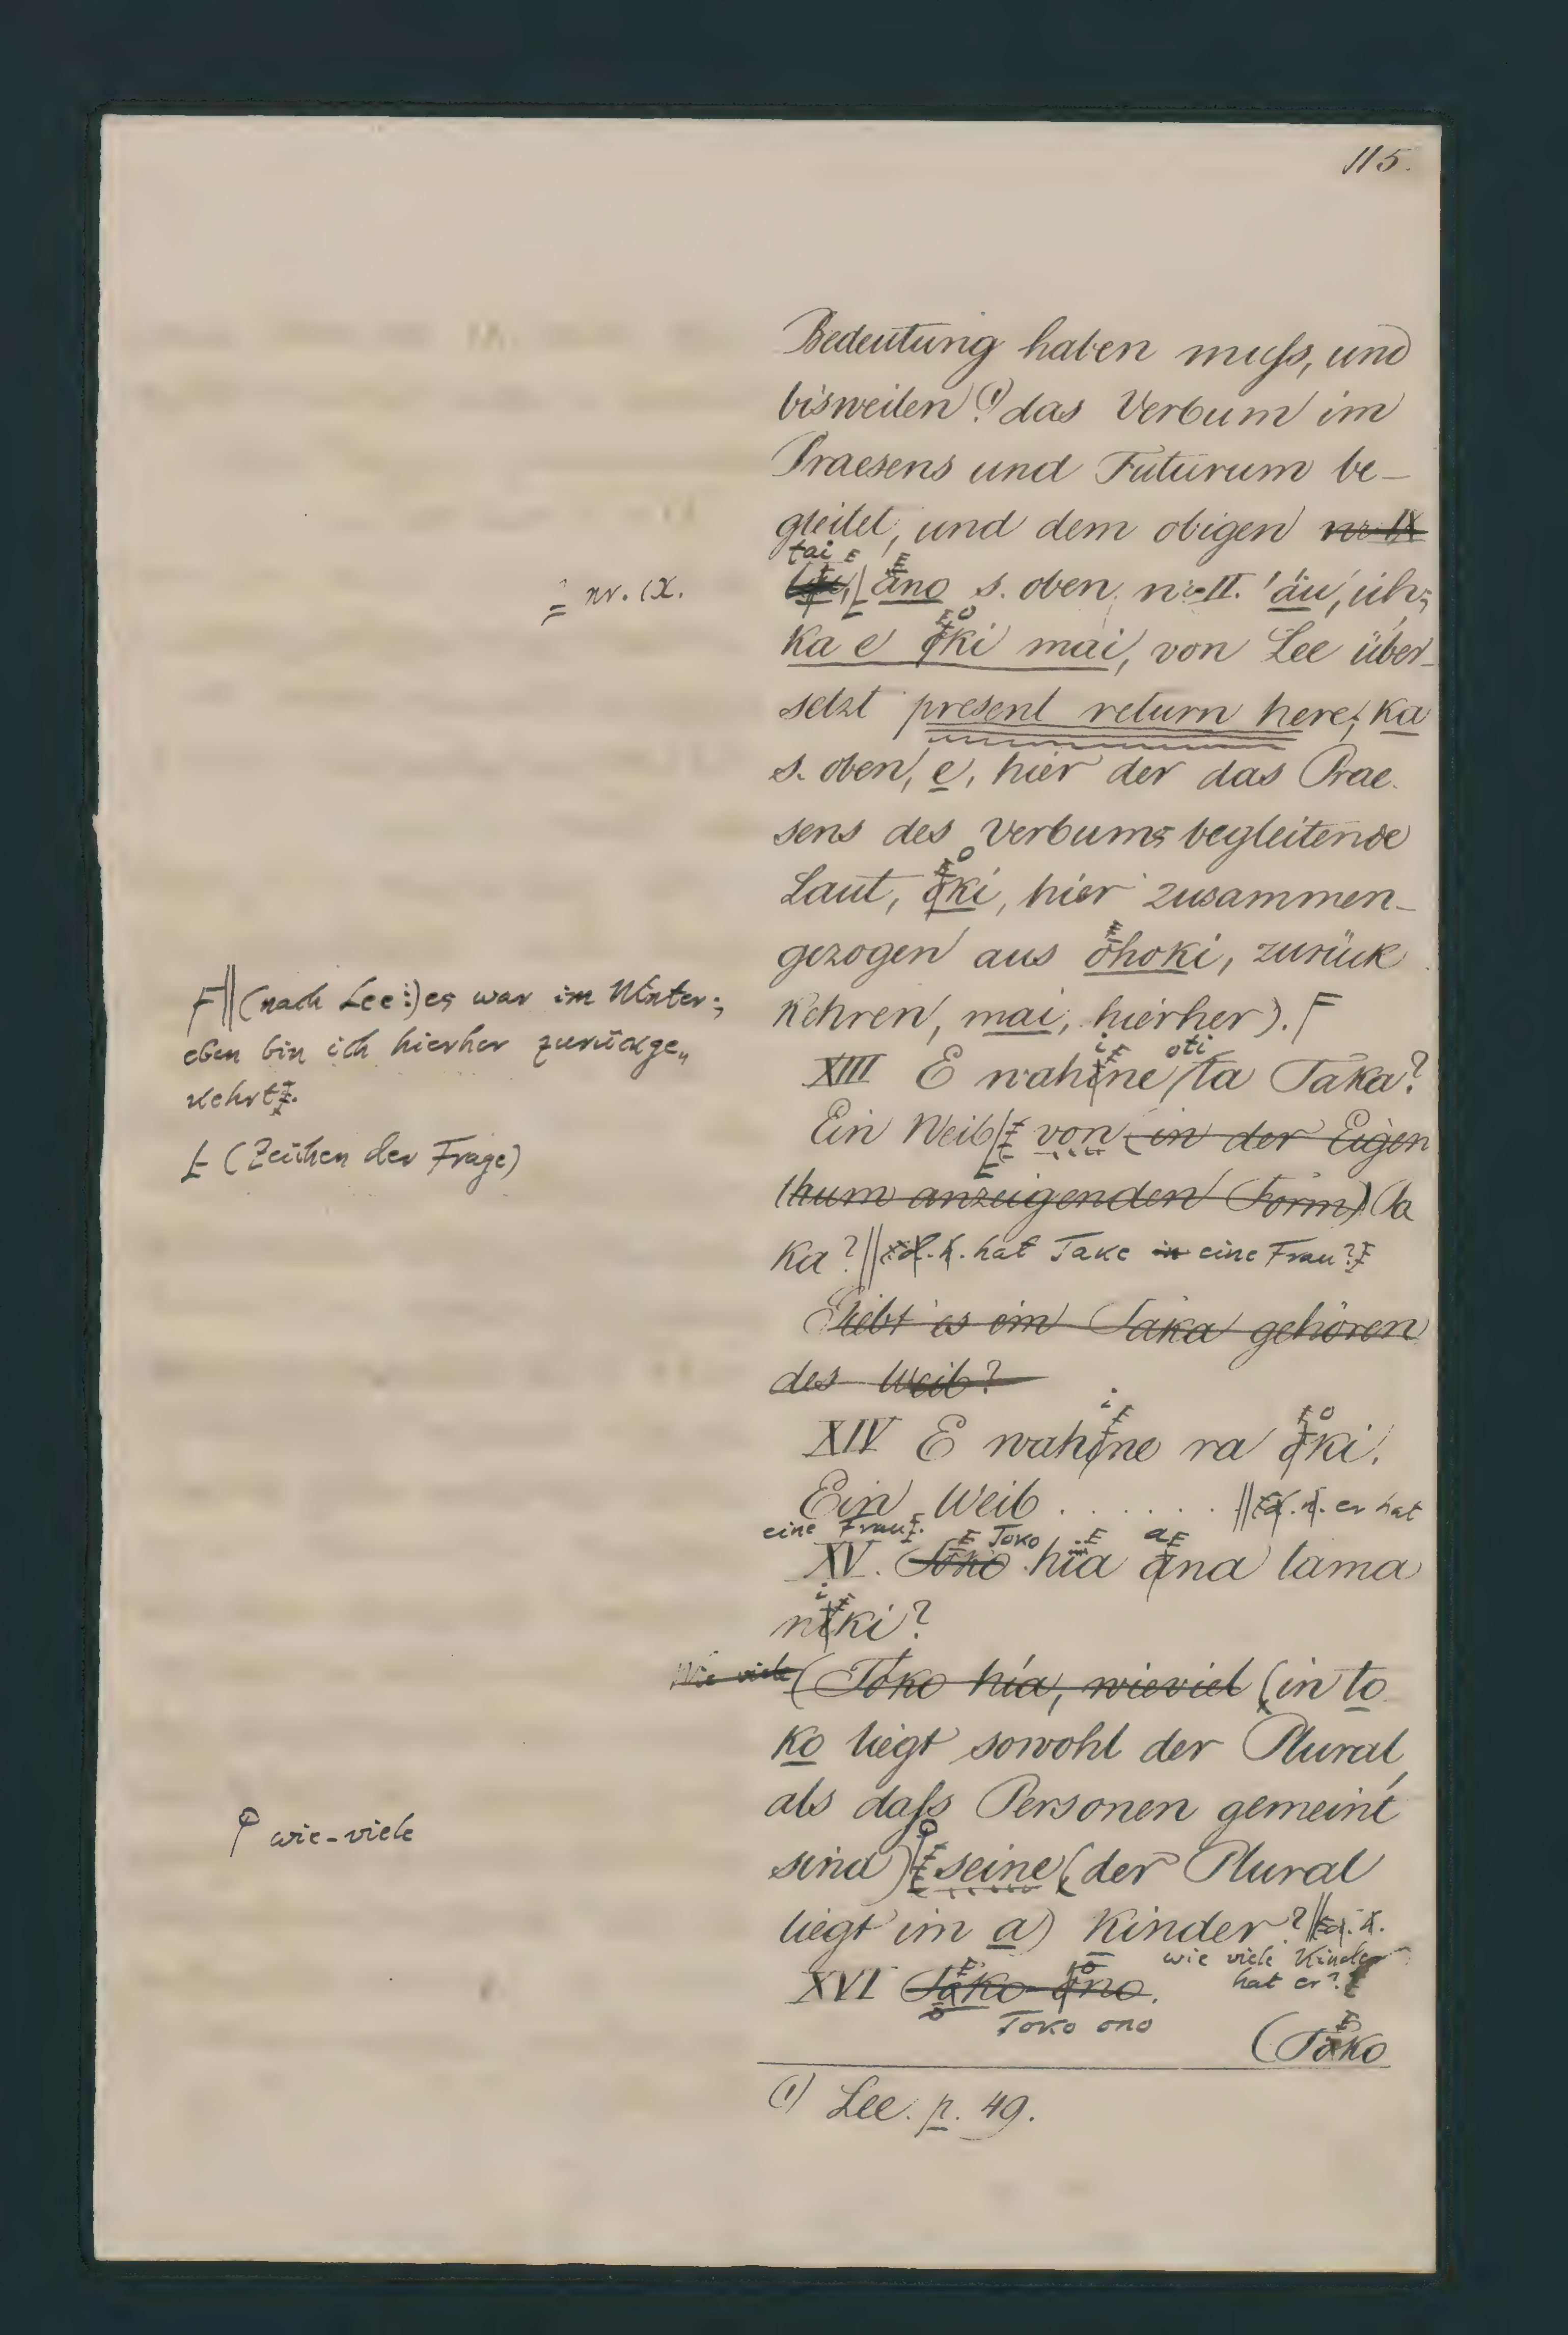 115.
Bedeutung haben muſs, und
bisweilen (1) das Verbum im
Praesens und Futurum be-
gleitet, und dem obigen nr. IX
tai
= nr. IX.
āno s. oben nr. II. 'āu, ich;
ka e oki mai, von Lee über-
setzt present return here; ka
s. oben, e, hier der das Prae-
sens des Verbums begleitende
Laut, oki, hier zusammen-
gezogen aus ōhoki, zurück
kehren, mai, hierher).
(nach Lee:) es war im Winter;
eben bin ich hierher zurückge-
kehrt.
XIII E wahine oti ta Taka?
(Zeichen der Frage)
Ein Weib von (in der Eigen
thum anzeigenden Form) Ta
ka? d. h. hat Taka eine Frau?
Giebt es ein Taka gehören
des Weib?
XIV E wahine ra oki.
Ein Weib . . . . . . . d. h. er hat
eine Frau.
XV. Toko hia ana tama
niki?
Wie viele (Toko hía, wieviel (in to
ko liegt sowohl der Plural,
als daſs Personen gemeint
sind) seine (der Plural
wie-viele
liegt im a) Kinder? d. h.
wie viele Kinder
hat er?
XVI Toko ono.
Toko ono
(Toko
(1) Lee. p. 49.